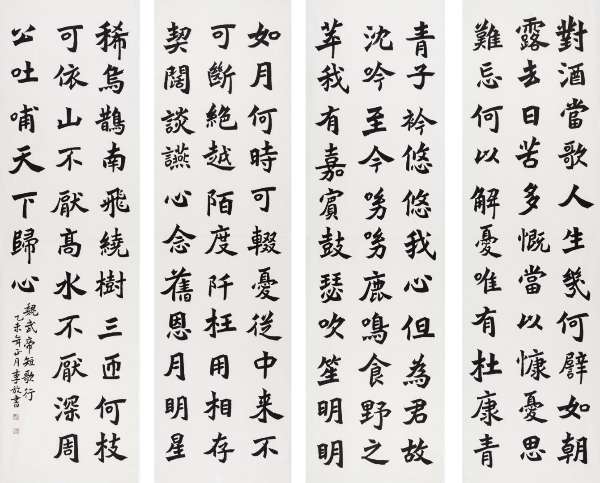 對酒當歌人生幾何譬如朝
露去日苦多慨當以慷憂思
難忘何以解憂唯有杜康青
青子衿悠悠我心但為君故
沈吟至今呦呦鹿鳴食野之
苹我有嘉賓鼓瑟吹笙明明
如月何時可輟憂從中来不
可斷絕越陌度阡枉用相存
契闊談讌心念舊恩月明星
稀烏鵲南飛繞樹三匝何枝
可依山不厭高水不厭深周
公吐哺天下歸心
魏武帝短歌行
乙未年正月李放書